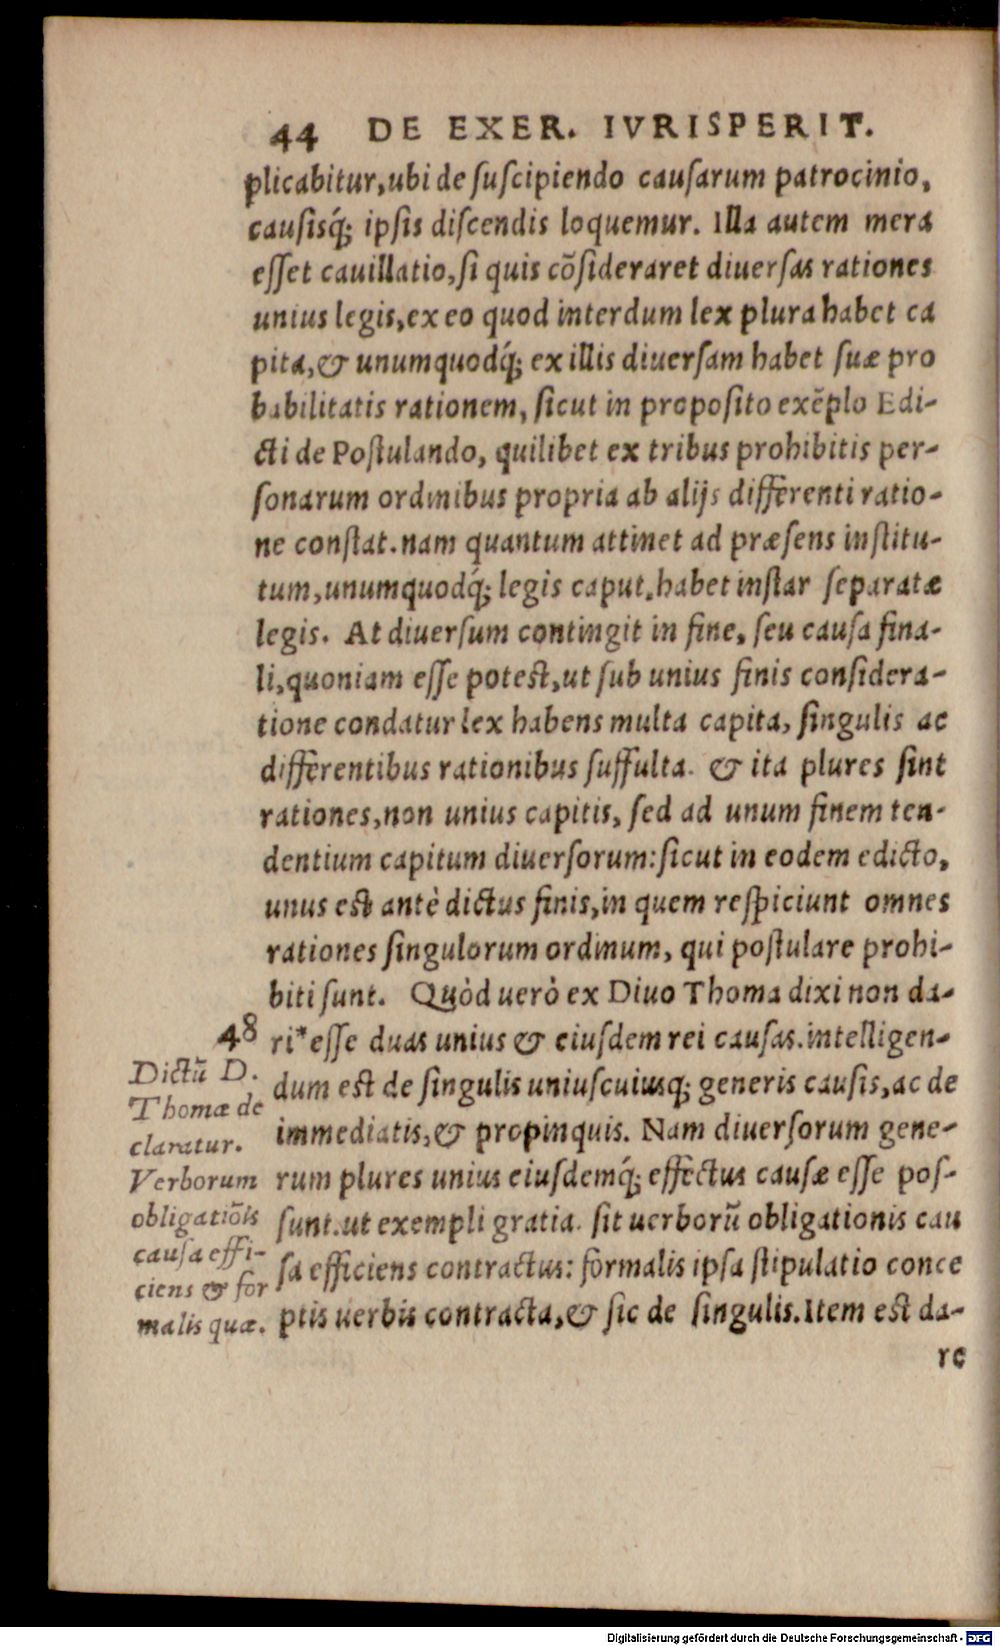 44 DE EXER. IVRISPERIT.
plicabitur, ubi de ſuſcipiendo cauſarum patrocinio,
cauſisq́; ipſis diſcendis loquemur. Illa autem mera
eſſet cauillatio, ſi quis cõſideraret diuerſas rationes
unius legis, ex eo quod interdum lex plura habet ca
pita, & unumquodq́; ex illis diuerſam habet ſuæ pro
babilitatis rationem, ſicut in propoſito exẽplo Edi-
cti de Poſtulando, quilibet ex tribus prohibitis per-
ſonarum ordinibus propria ab alijs differenti ratio-
ne conſtat. nam quantum attinet ad præſens inſtitu-
tum, unumquodq́; legis caput, habet inſtar ſeparatæ
legis. At diuerſum contingit in fine, ſeu cauſa fina-
li, quoniam eſſe poteſt, ut ſub unius finis conſidera-
tione condatur lex habens multa capita, ſingulis ac
differentibus rationibus ſuffulta. & ita plures ſint
rationes, non unius capitis, ſed ad unum finem ten-
dentium capitum diuerſorum: ſicut in eodem edicto,
unus eſt antè dictus finis, in quem reſpiciunt omnes
rationes ſingulorum ordinum, qui poſtulare prohi-
biti ſunt. Quòd uerò ex Diuo Thoma dixi non da-
ri* eſſe duas unius & eiuſdem rei cauſas. intelligen-
dum eſt de ſingulis uniuſcuiusq; generis cauſis, ac de
immediatis, & propinquis. Nam diuerſorum gene-
rum plures unius eiuſdemq́; effectus cauſæ eſſe poſ-
ſunt. ut exempli gratia. ſit uerborũ obligationis cau
ſa efficiens contractus: formalis ipſa ſtipulatio conce
ptis uerbis contracta, & ſic de ſingulis. Item eſt da-
re
48
Dictũ D.
Thomæ de
claratur.
Verborum
obligatiõis
cauſa effi-
ciens & for
malis quæ.
Digitalisierung gefördert durch die Deutsche Forschungsgemeinschaft - DFG